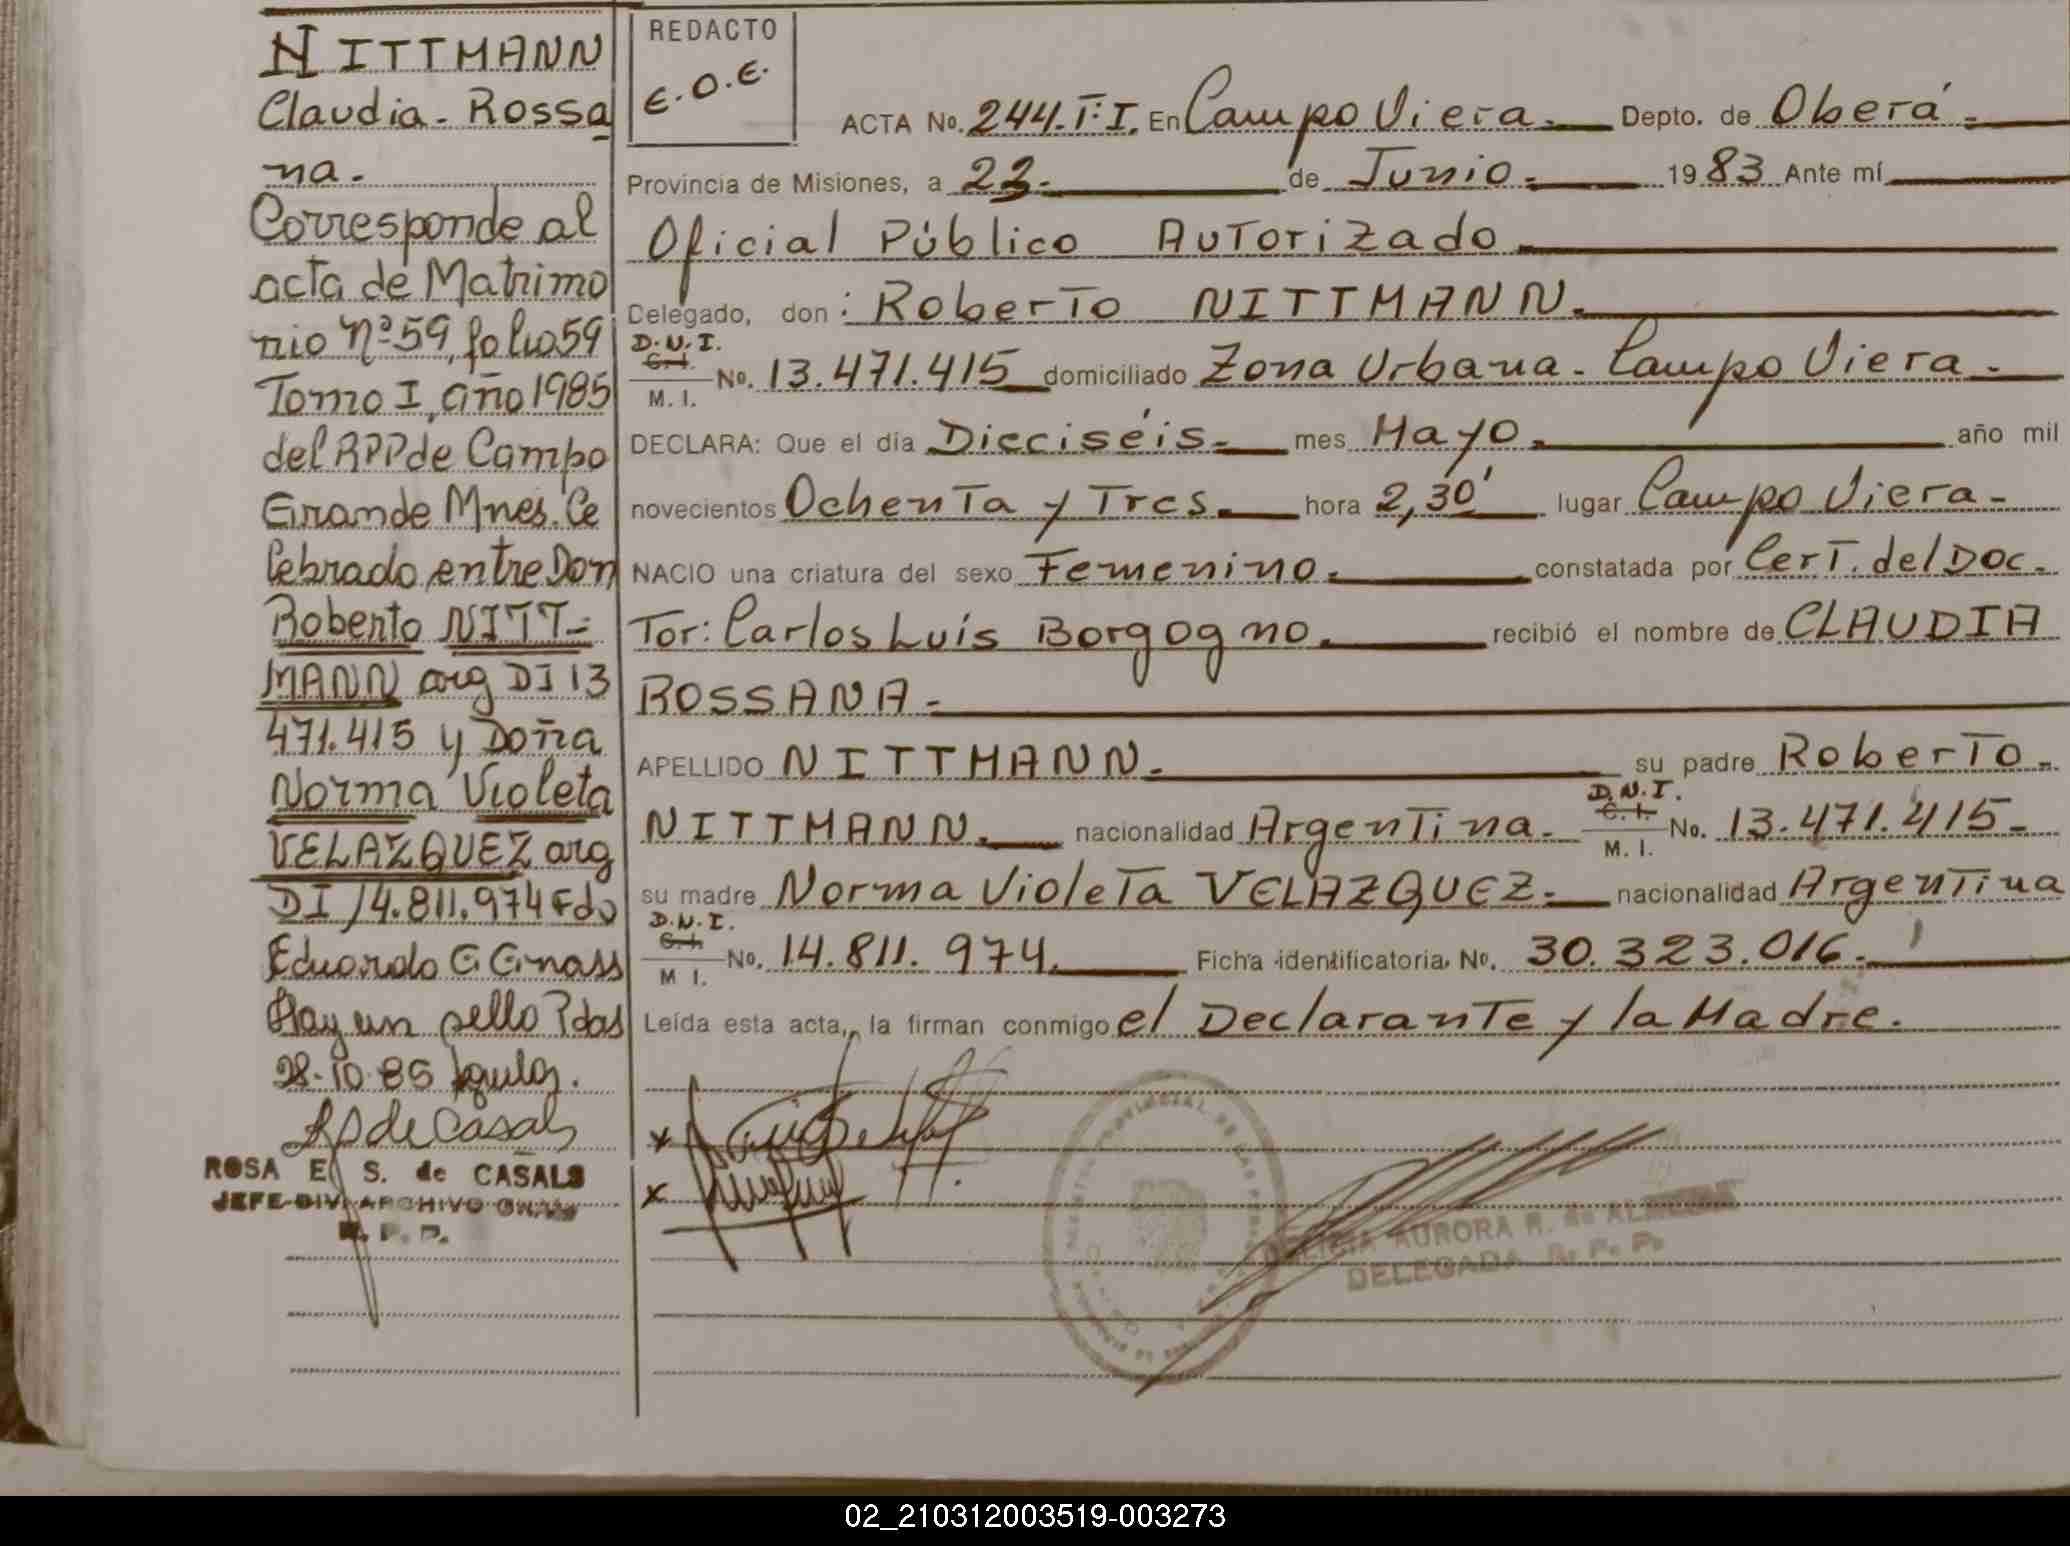 NITTMANN
Claudia - Rossa
na.
Corresponde al
acta de Matrimo
nio Nº 59, folio 59
Tomo I, año 1985
del RPP de Campo
Grande Mnes. Ce
lebrado, entre Don
Roberto NITT-
MANN arg DI 13
471.415 y Doña
Norma Violeta
VELAZQUEZ arg
DI 14.811.974 Fdo
Eduardo G
Hay un sello Pdas
28-10-85
RS de Casals
ROSA E. S. de CASALS
JEFE DIV. ARCHIVO GRAL
R. P. P.
REDACTO
E.O.E.
ACTA No. 244. T: I. En Campo Viera. Depto. de Oberá.
Provincia de Misiones, a 23. de Junio. 1983 Ante mí
Oficial Público Autorizado
Delegado, don: Roberto NITTMANN.
D.N.I.
C.I.
M. I.
No. 13.471.415 domiciliado Zona Urbana - Campo Viera.
DECLARA: Que el día Dieciséis. mes Mayo. año mil
novecientos Ochenta y Tres. hora 2,30' lugar Campo Viera.
NACIO una criatura del sexo Femenino. constatada por Cert. del Doc.
Tor: Carlos Luís Borgogno. recibió el nombre de CLAUDIA
ROSSANA.
APELLIDO NITTMANN. su padre Roberto.
D.N.I.
NITTMANN. nacionalidad Argentina. C.I. M. I. No. 13.471.415.
su madre Norma Violeta VELAZQUEZ. nacionalidad Argentina
D.N.I.
C.I.
M I.
No. 14.811.974. Ficha identificatoria No. 30.323.016.
Leída esta acta, la firman conmigo el Declarante y la Madre.
x
x
DELICIA AURORA R. de
DELEGADA R. P. P.
02_210312003519-003273